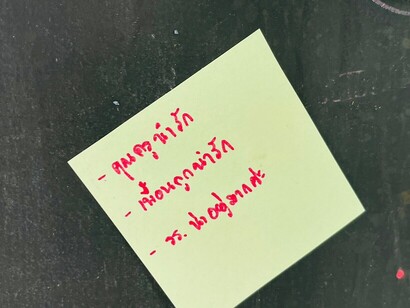 - คุณครูน่ารัก
- เพื่อนทุกน่ารัก
- รร. น่าอยู่มากค่ะ